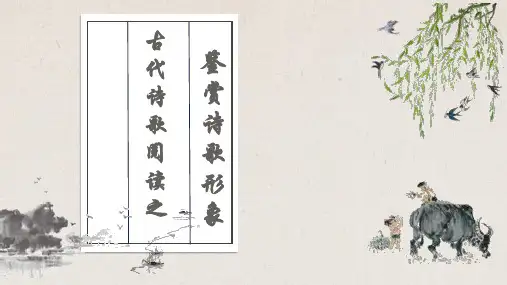 古代诗歌阅读之
鉴赏诗歌形象